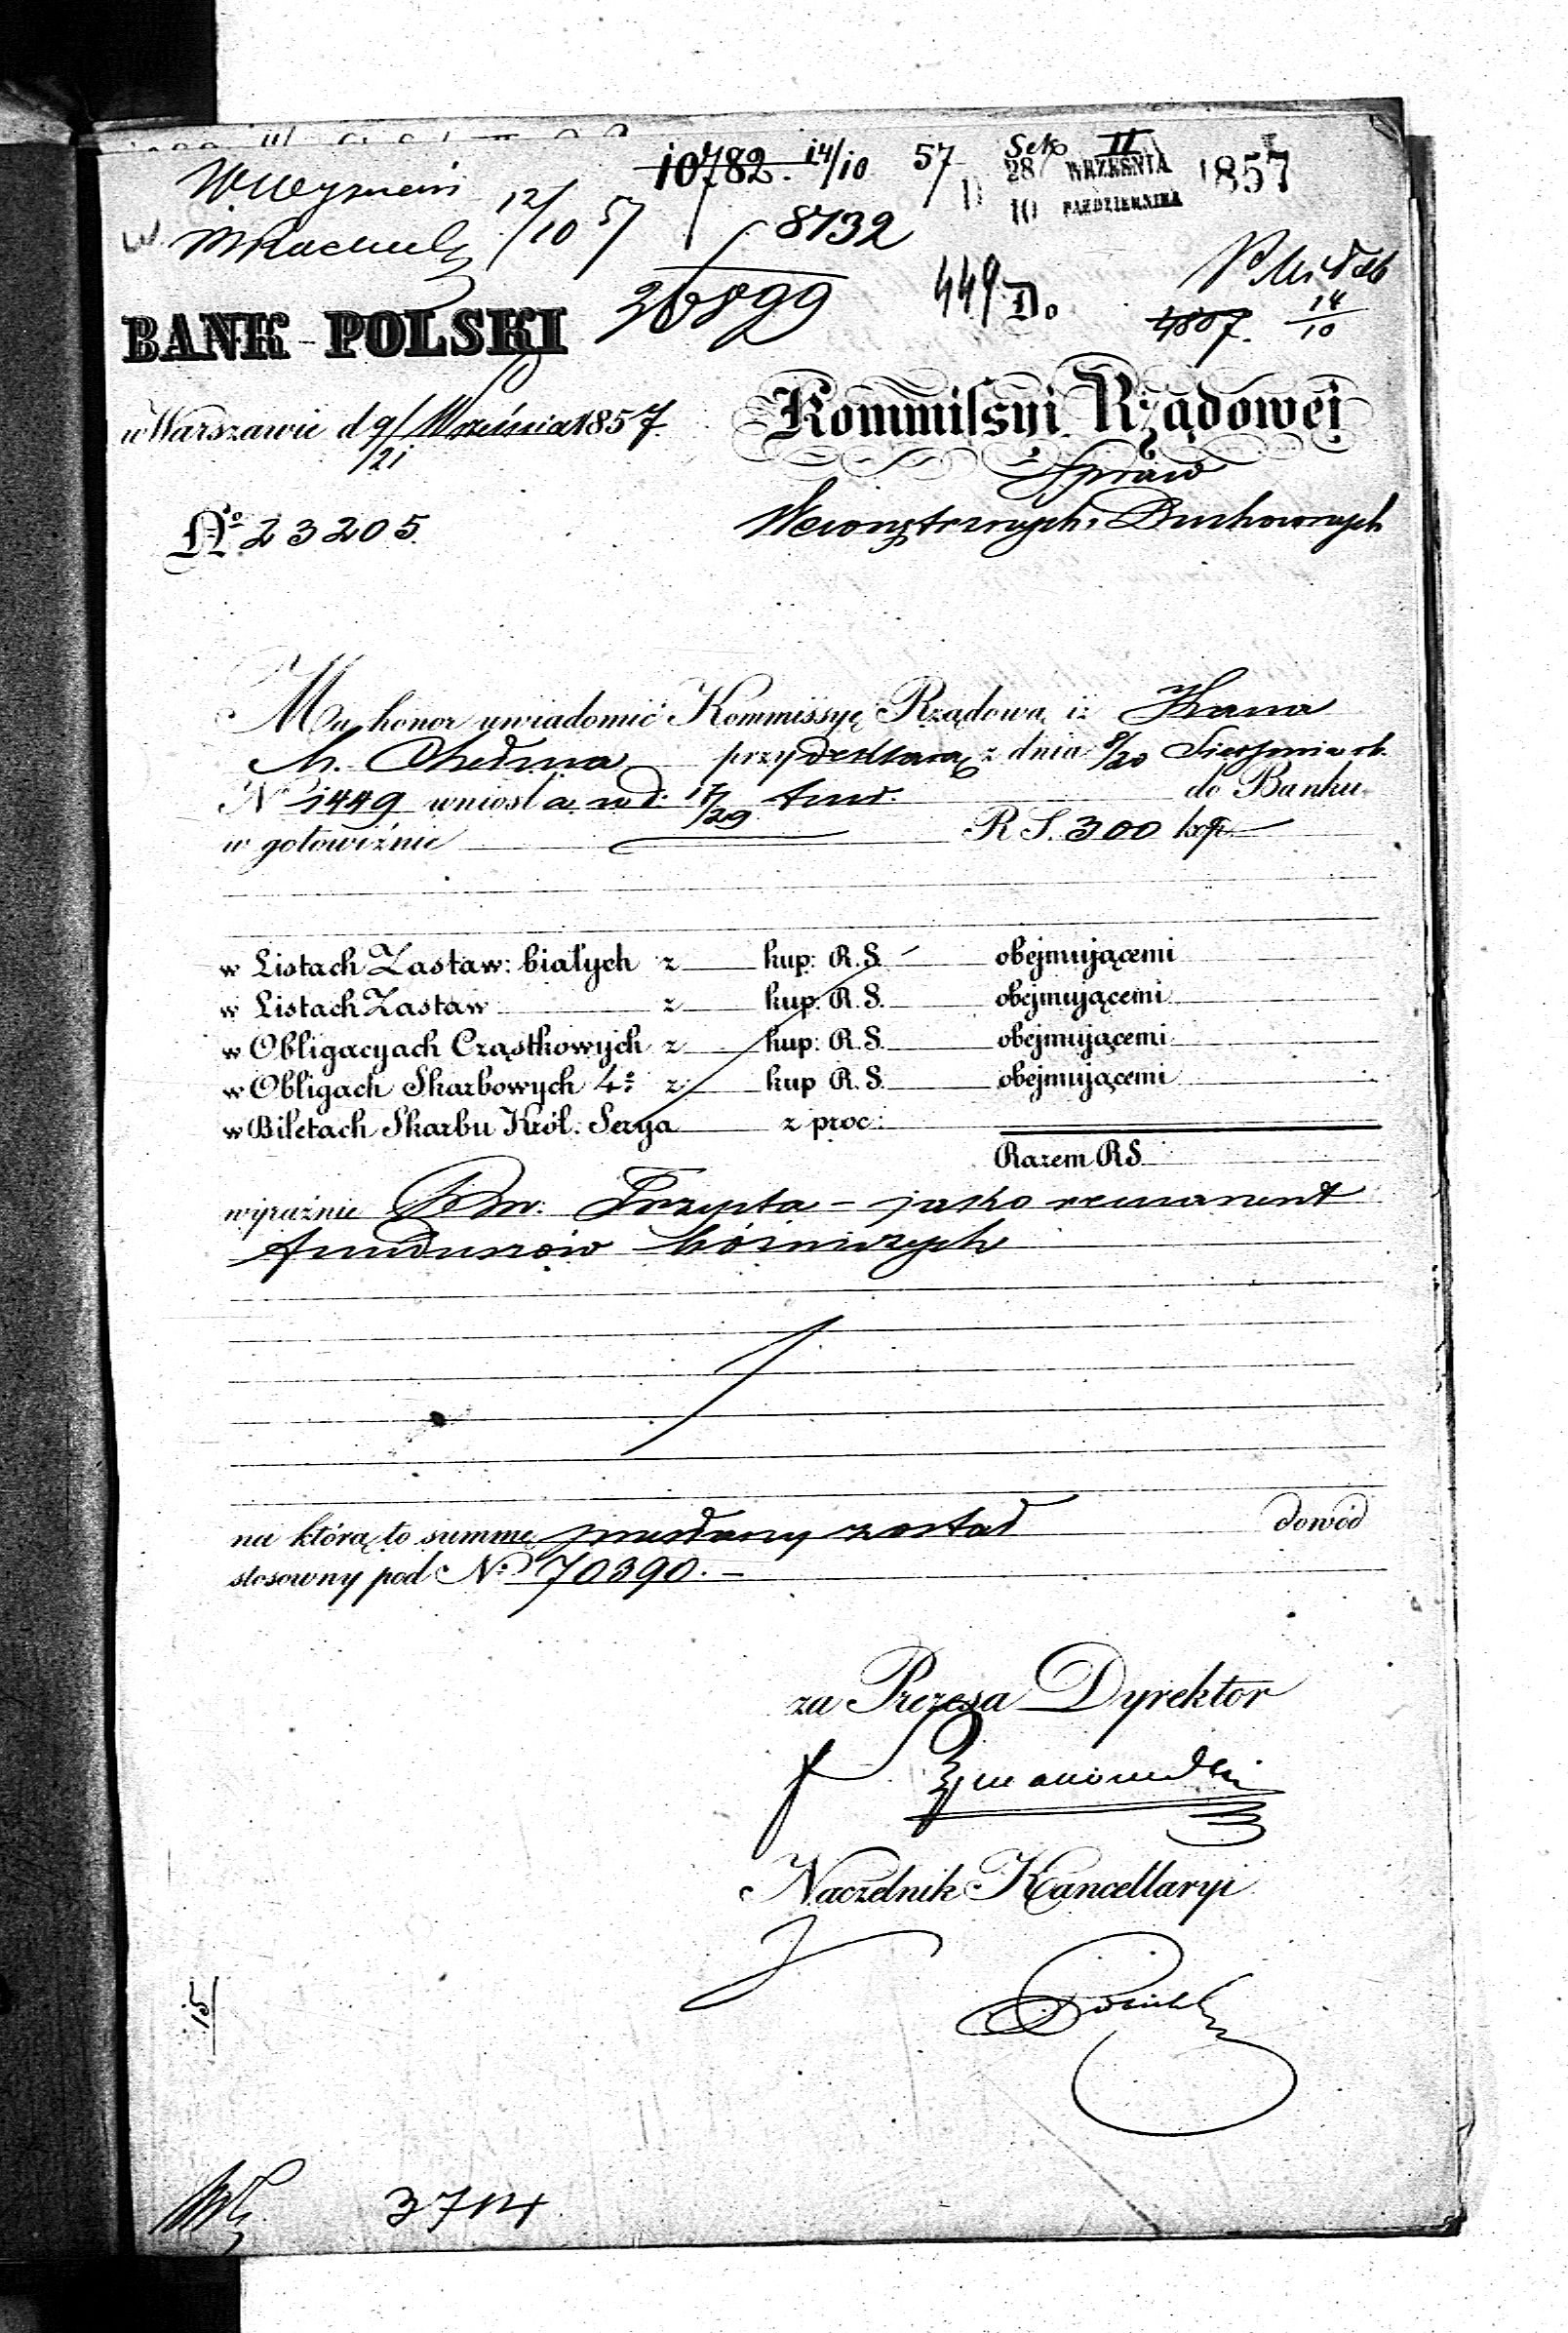 10782. 14/10 57
Sek II
28 WRZEŚNIA 1857
10 PAŹDZIERNIKA
12/10 57
8732
36899
449
Do
4807. 14/10
BANK POLSKI
w Warszawie d 9/21 Września 1857.
Kommissyi Rządowej
Spraw
Wewnętrznych i Duchownych
No 23205.
Ma honor uwiadomić Kommissyę Rządową iż Kassa
M. Chełma przy deklaracyi z dnia 8/20 Sierpnia rb.
No 1449 wniosła pod d. 17/29 do Banku
w gotowiźnie R S. 300 kop. —
w Listach Zastaw: białych z kup: R.S. obejmującemi
w Listach Zastaw z kup. R.S. obejmującemi
w Obligacyach Cząstkowych z kup: R.S. obejmującemi
w Obligach Skarbowych 4% z kup R.S. obejmującemi
w Biletach Skarbu Król. Serya z proc:
Razem RS.
wyraźnie Rsr. Trzysta – jako remanent
funduszów bóżniczych
na którą to summę przesłany został dowód
stosowny pod No 70390. –
za Prezesa Dyrektor
Naczelnik Kancellaryi
15
3714